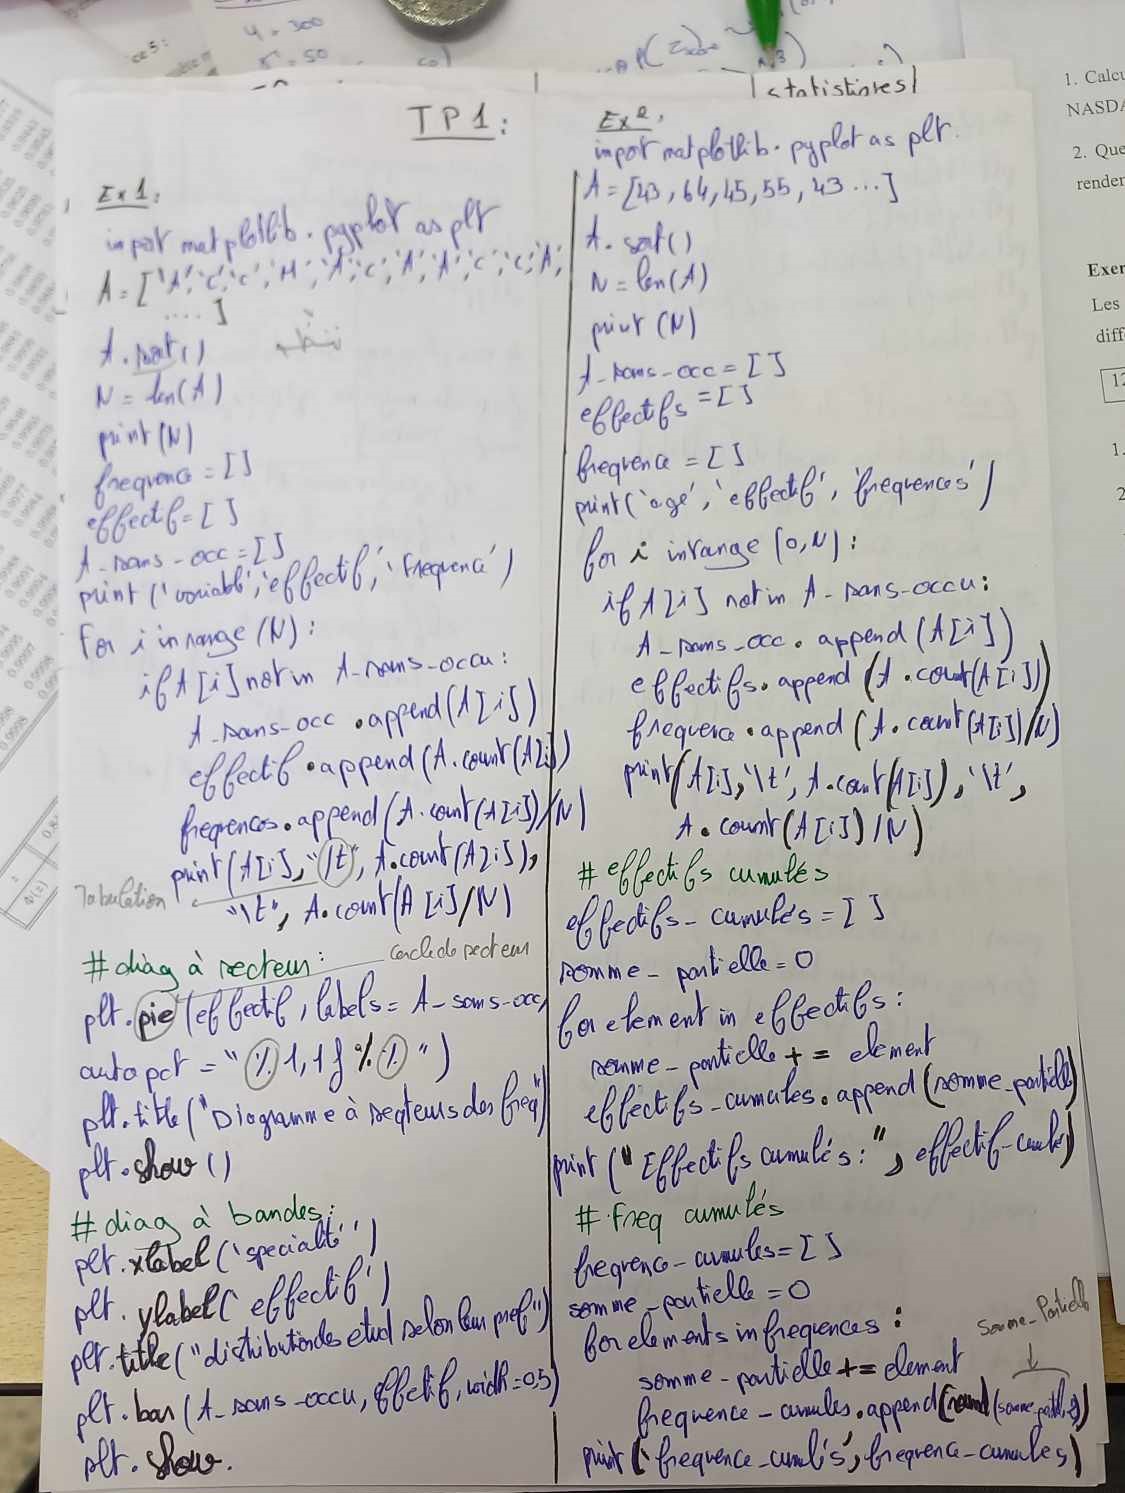 4 = 300
= 50
statistiques
TP1:
Ex1:
import matplotlib.pyplot as plt
A = ['A','C','C','M','A','C','A','A','C','C','A',
....]
A.sort()
N = len(A)
print(N)
frequence = []
effectif = []
A_sans_occ = []
print('variable','effectif','frequence')
For i in range(N):
if A[i] not in A_sans_occu:
A_sans_occ.append(A[i])
effectif.append(A.count(A[i])
frequences.append(A.count(A[i])/N)
print(A[i],"/t", A.count(A[i]),
Tabulation
"\t", A.count(A[i]/N)
#diag à secteur:
cercle de secteur
plt.pie(effectif, labels = A_sans_occ,
autopct = "%1,1f%%")
plt.title("Diagramme à secteurs des freq")
plt.show()
#diag à bandes:
plt.xlabel('specialité')
plt.ylabel('effectif')
plt.title("distribution des etud selon leur pref")
plt.bar(A_sans_occu, effectif, width=0,5)
plt.show.
Ex2:
import matplotlib.pyplot as plt.
A = [43, 64, 45, 55, 43 ...]
A.sort()
N = len(A)
print(N)
A_sans_occ = []
effectifs = []
frequence = []
print('age', 'effectif', 'frequences')
for i in range (0,N):
if A[i] not in A_sans_occu:
A_sans_occ.append(A[i])
effectifs.append(A.count(A[i]))
frequence.append(A.count(A[i])/N)
print(A[i],'\t', A.count(A[i]), '\t',
A.count(A[i])/N)
# effectifs cumulés
effectifs_cumulés = []
somme_partielle = 0
for element in effectifs:
somme_partielle += element
effectifs_cumules.append(somme_partielle)
print("Effectifs cumulés:", effectif_cumulés)
# Freq cumulés
frequence_cumules = []
somme_partielle = 0
Somme_Partielle
for elements in frequences:
somme_partielle += element
frequence_cumules.append(round(somme_partiel,2))
print('frequence_cumulés', frequence_cumules)
1. Calcu
NASDA
2. Que
render
Exer
Les
diff
12
1.
2